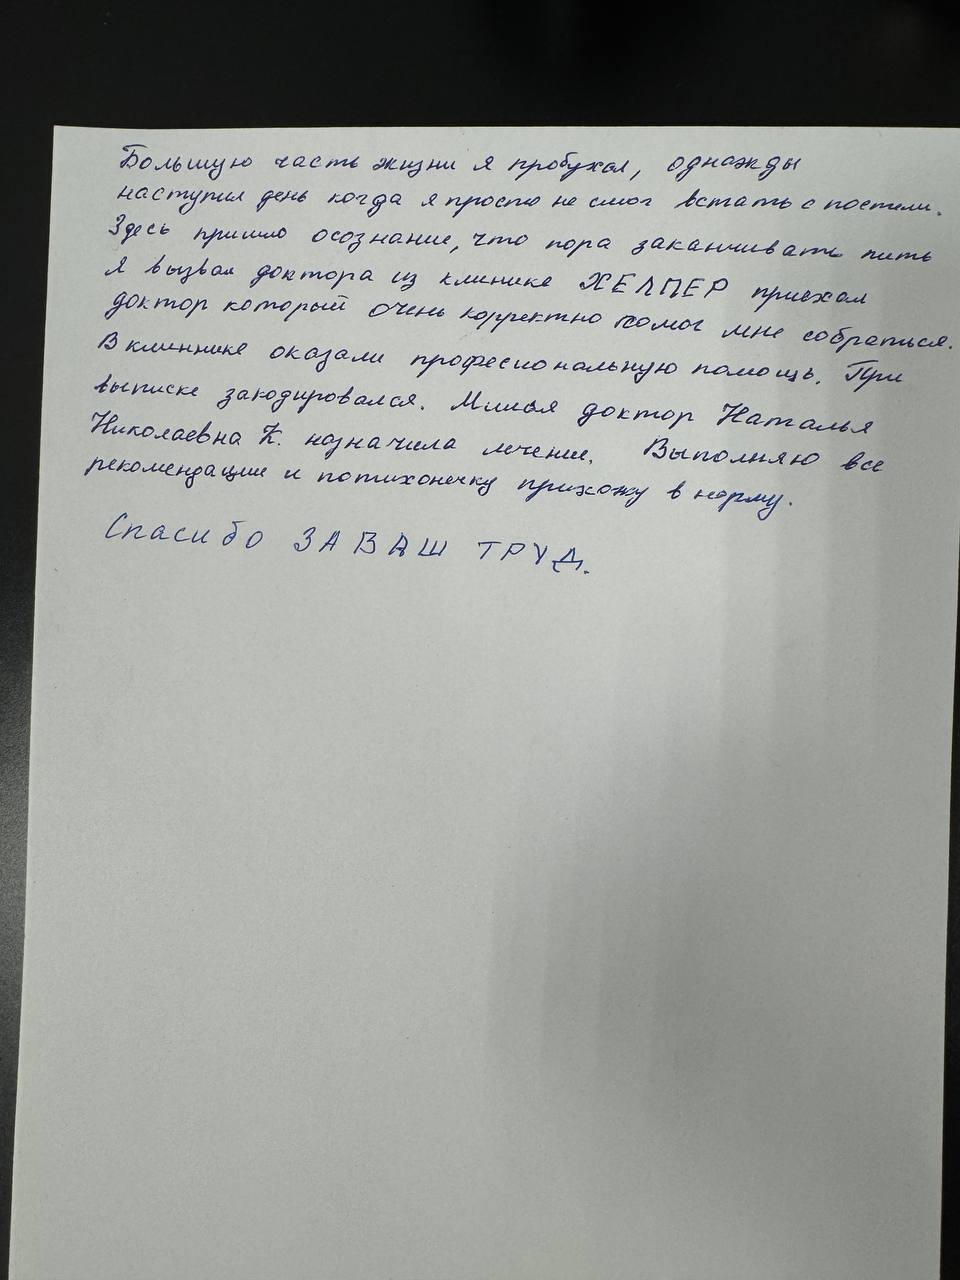 Большую часть жизни я пробухал, однажды
наступил день когда я просто не смог встать с постели.
Здесь пришло осознание, что пора заканчивать пить
Я вызвал доктора из клинике ХЕЛПЕР приехал
доктор который очень корректно помог мне собраться.
В клиннике оказали професиональную помощь. При
выписке закодировался. Милья доктор Наталья
Николаевна К. назначила лечение. Выполняю все
рекомендации и потихонечку прихожу в норму.
Спасибо ЗА ВАШ ТРУД.